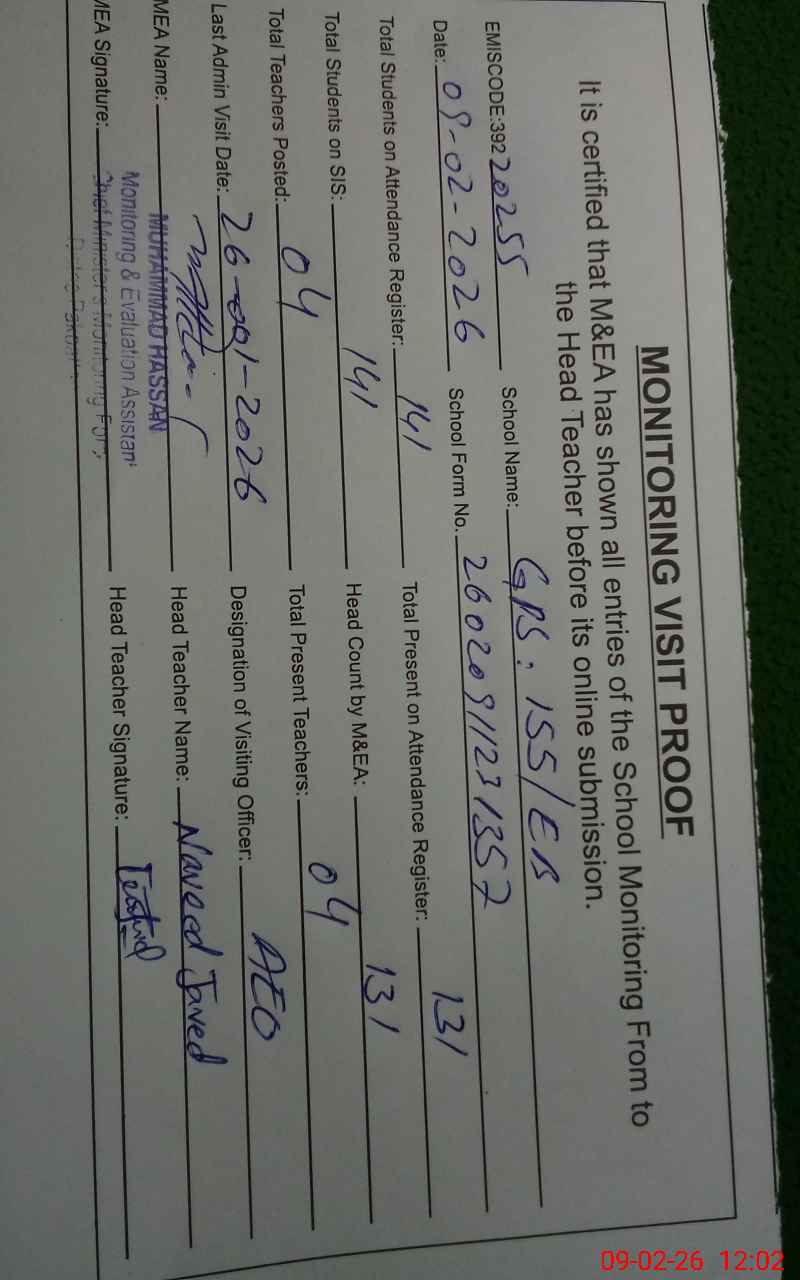 MONITORING VISIT PROOF
It is certified that M&EA has shown all entries of the School Monitoring From to
the Head Teacher before its online submission.
EMISCODE:392 20255 School Name: GPS: 155/EB
Date: 09-02-2026 School Form No. 26020911231357
Total Students on Attendance Register: 141 Total Present on Attendance Register: 131
Total Students on SIS: 141 Head Count by M&EA: 131
Total Teachers Posted: 04 Total Present Teachers: 04
Last Admin Visit Date: 26-01-2026 Designation of Visiting Officer: AEO
MEA Name: MUHAMMAD HASSAN Head Teacher Name: Naveed Javed
Monitoring & Evaluation Assistant
MEA Signature: Chief Minister's Monitoring Force Head Teacher Signature:
09-02-26 12:02